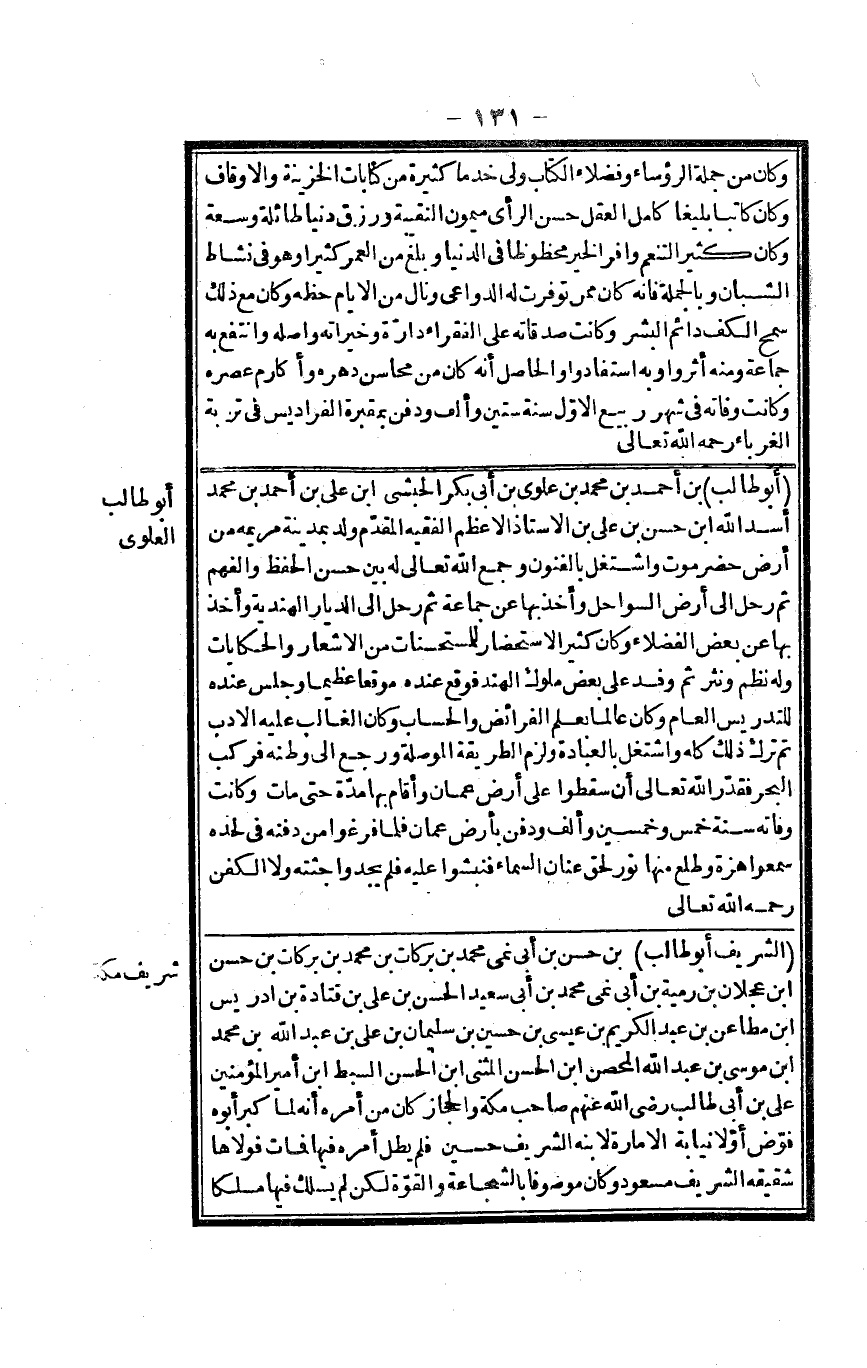 - ١٣١ -
وكان من جملة الرؤساء وفضلاء الكتاب ولى خدما كثيرة من كتابات الخزينة والاوقاف
وكان كاتبا بليغا كامل العقل حسن الرأى ميمون النقيبة ورزق دنيا طائلة وسعة
وكان كثير التنعم وافر الخير محظوظا فى الدنيا وبلغ من العمر كثيرا وهو فى نشاط
الشبان وبالجملة فانه كان ممن توفرت له الدواعى ونال من الايام حظه وكان مع ذلك
سمح الكف دائم البشر وكانت صدقاته على الفقراء دارّة وخيراته واصله وانتفع به
جماعة ومنه أثروا وبه استفادوا والحاصل أنه كان من محاسن دهره وأكارم عصره
وكانت وفاته فى شهر ربيع الاوّل سنة ستين وألف ودفن بمقبرة الفراديس فى تربة
الغرباء رحمه الله تعالى
أبو طالب
العلوى
(أبو طالب) بن أحمد بن محمد بن علوى بن أبى بكر الحبشى ابن على بن أحمد بن محمد
أسد الله ابن حسن بن على بن الاستاذ الاعظم الفقيه المقدّم ولد بمدينة مريمه من
أرض حضرموت واشتغل بالفنون وجمع الله تعالى له بين حسن الحفظ والفهم
ثم رحل الى أرض السواحل وأخذ بها عن جماعة ثم رحل الى الديار الهندية وأخذ
بها عن بعض الفضلاء وكان كثير الاستحضار للمستحسنات من الاشعار والحكايات
وله نظم ونثر ثم وفد على بعض ملوك الهند فوقع عنده موقعا عظيما وجلس عنده
للتدريس العام وكان عالما بعلم الفرائض والحساب وكان الغالب عليه الادب
ثم ترك ذلك كله واشتغل بالعبادة ولزم الطريقة الموصلة ورجع الى وطنه فركب
البحر فقدّر الله تعالى أن سقطوا على أرض عمان وأقام بها مدّة حتى مات وكانت
وفاته سنة خمس وخمسين وألف ودفن بأرض عمان فلما فرغوا من دفنه فى لحده
سمعوا هزة وطلع منها نور لحق عنان السماء فنبشوا عليه فلم يجدوا جثته ولا الكفن
رحمه الله تعالى
شريف مكة
(الشريف أبو طالب) بن حسن بن أبى نمى محمد بن بركات بن محمد بن بركات بن حسن
ابن عجلان بن رميثة بن أبى نمى محمد بن أبى سعيد الحسن بن على بن قتادة بن ادريس
ابن مطاعن بن عبد الكريم بن عيسى بن حسين بن سليمان بن على بن عبد الله بن محمد
ابن موسى بن عبد الله المحصن ابن الحسن المثنى ابن الحسن السبط ابن أمير المؤمنين
على بن أبى طالب رضى الله عنهم صاحب مكة والحجاز كان من أمره أنه لما كبر أبوه
فوّض أوّلا نيابة الامارة لابنه الشريف حسين فلم يطل أمره فيها فمات فولاها
شقيقه الشريف مسعود وكان موصوفا بالشجاعة والقوّة لكن لم يسلك فيها مسلكا